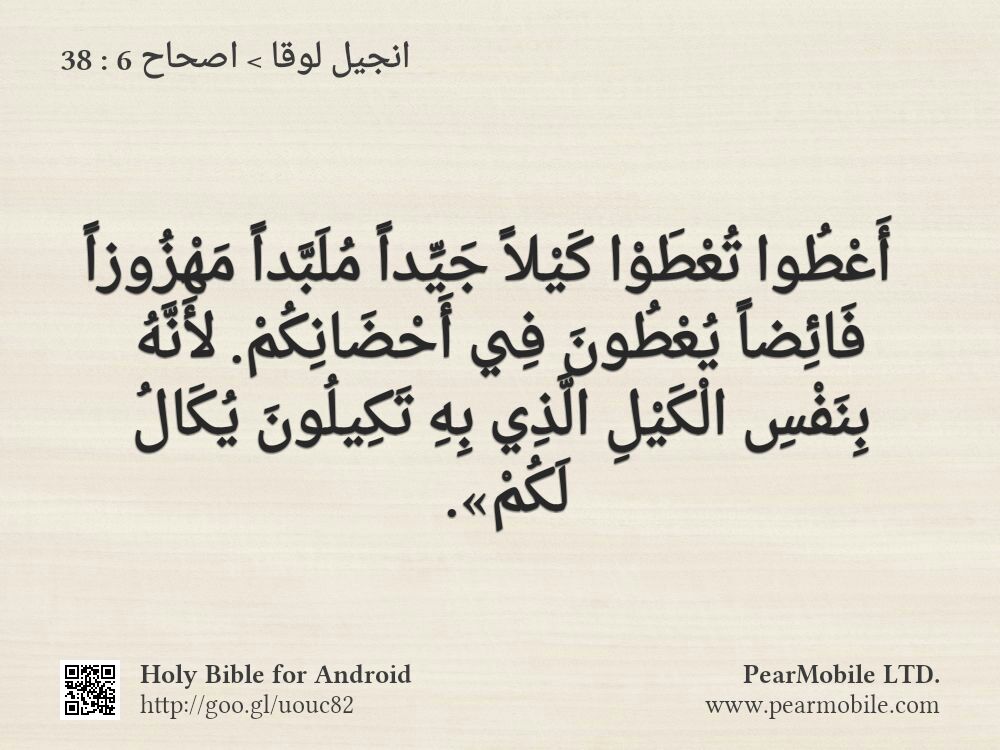 انجيل لوقا > اصحاح 6 : 38
أَعْطُوا تُعْطَوْا كَيْلاً جَيِّداً مُلَبَّداً مَهْزُوزاً
فَائِضاً يُعْطُونَ فِي أَحْضَانِكُمْ. لأَنَّهُ
بِنَفْسِ الْكَيْلِ الَّذِي بِهِ تَكِيلُونَ يُكَالُ
لَكُمْ».
Holy Bible for Android
http://goo.gl/uouc82
PearMobile LTD.
www.pearmobile.com